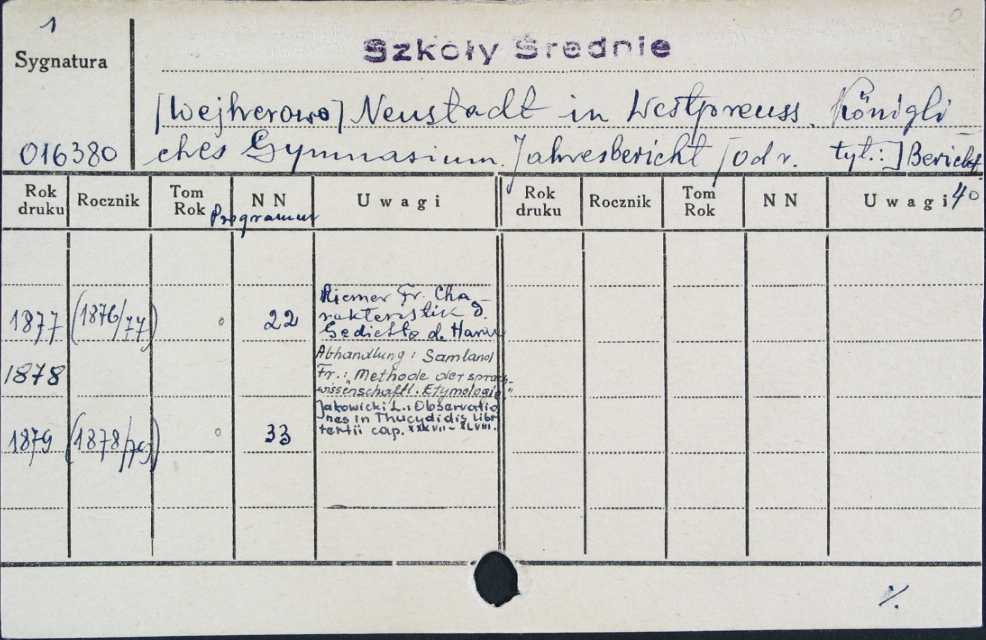 1
Sygnatura
Szkoły Średnie
[Wejherowo] Neustadt in Westpreuss. Königli
016380 ches Gymnasium. Jahresbericht [od r. tyt.:] Bericht
40
Rok druku Rocznik Tom Rok NN Uwagi Rok druku Rocznik Tom Rok NN Uwagi
Programm
1877 (1876/77) 22
Riemer Fr. Cha-
rakteristik d.
Gedichte d.
1878
Abhandlung: Samland
Fr.: Methode der sprach-
wissenschaftl. Etymologie"
1879 (1878/79) 33
Jakowicki L.: Observatio
nes in Thucydidis libr
tertii cap. XXXVII-XLVIII.
%